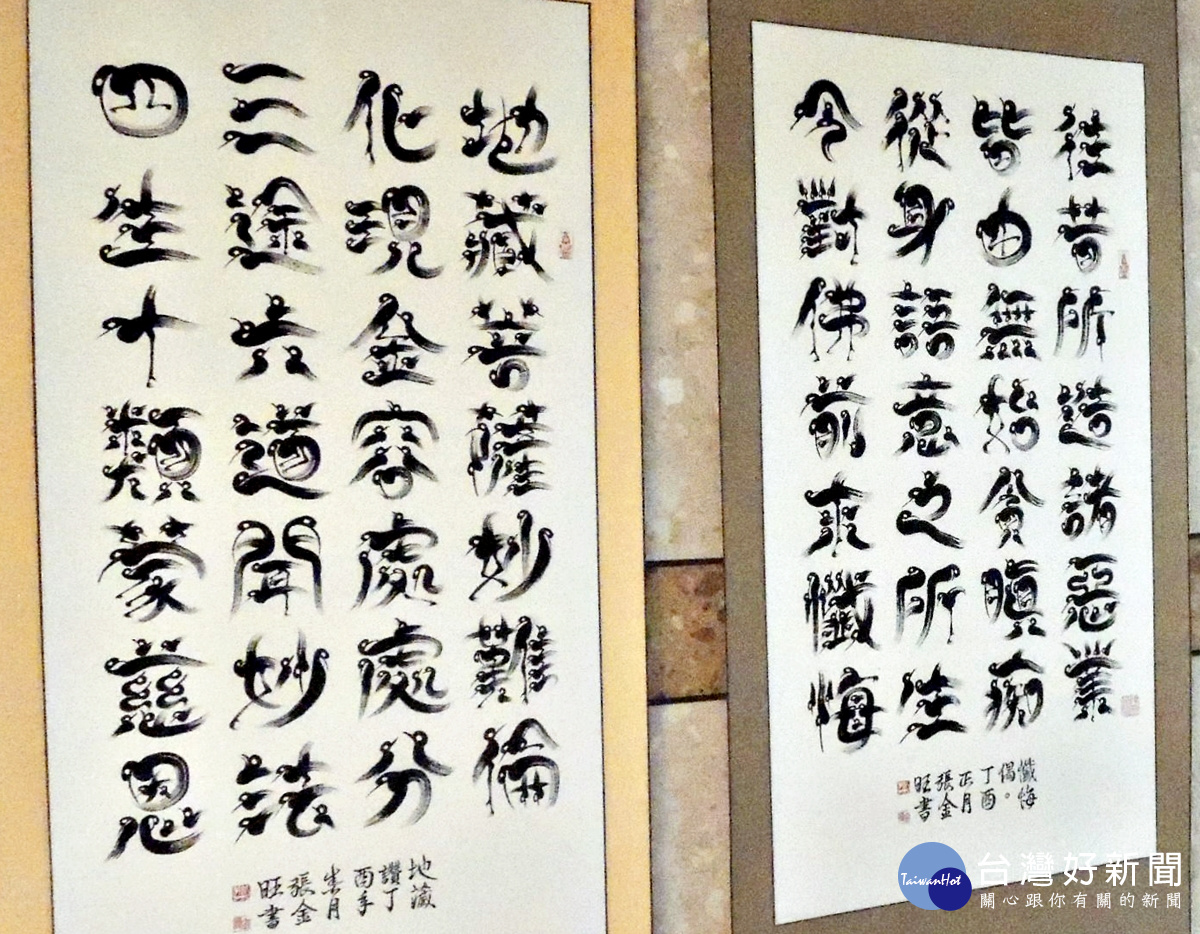 往昔所造諸惡業
皆由無始貪瞋痴
從身語意之所生
今對佛前求懺悔
懺悔
偈。
丁酉
正月
張金
旺書
地藏菩薩妙難倫
化現金容處處分
三途六道聞妙法
四生十類蒙慈恩
地藏
讚丁
酉年
月
張金
旺書
TaiwanHot
台灣好新聞
關心跟你有關的新聞